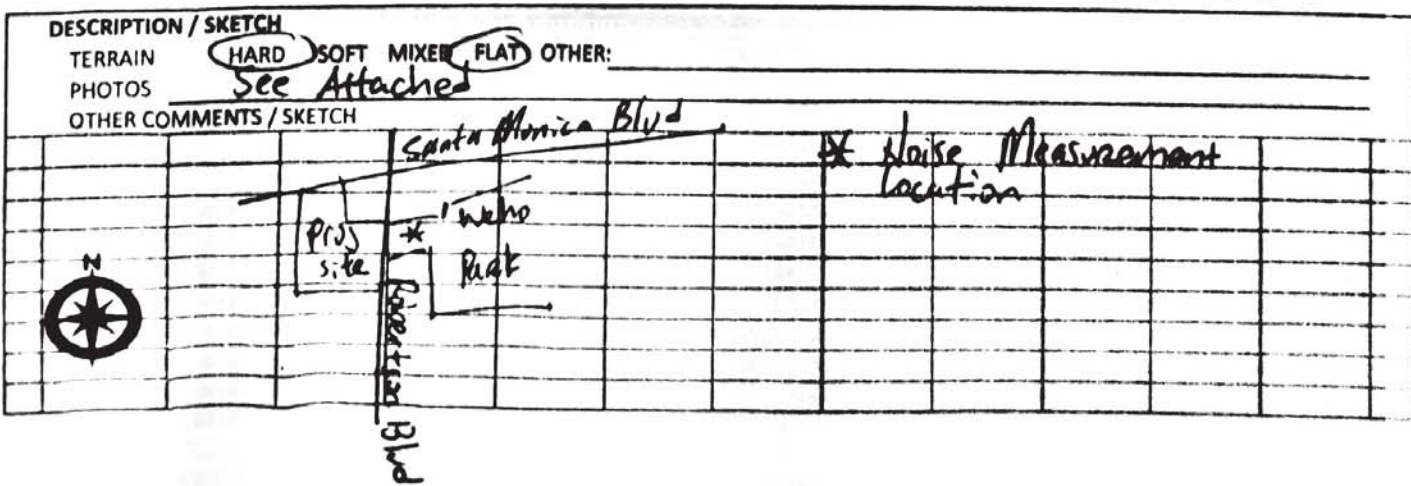 DESCRIPTION / SKETCH
TERRAIN HARD SOFT MIXED FLAT OTHER:
PHOTOS See Attached
OTHER COMMENTS / SKETCH
Santa Monica Blvd
* Noise Measurement
Location
Weho
Park
Proj
site
*
N
Robertson Blvd